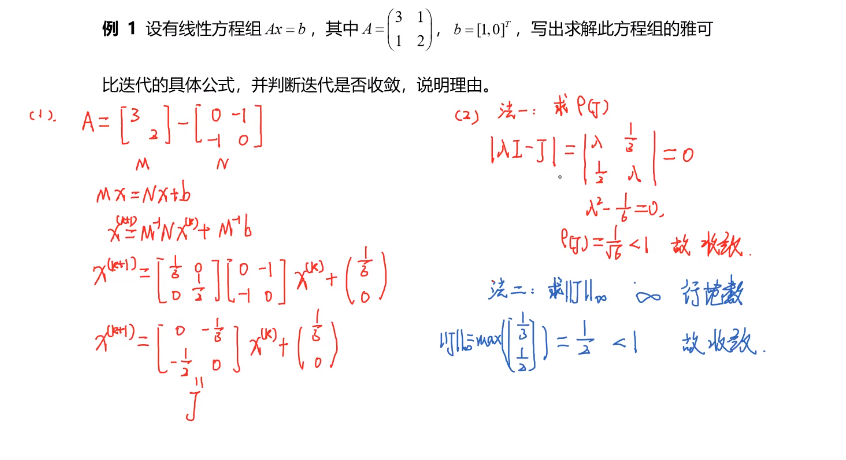 例 1 设有线性方程组 Ax = b ，其中 A = (3 1; 1 2)， b = [1,0]^T ，写出求解此方程组的雅可
比迭代的具体公式，并判断迭代是否收敛，说明理由。
(1). A = [3 ; 2] - [0 -1; -1 0]
M N
Mx = Nx + b
x^(k+1) = M^-1 N x^(k) + M^-1 b
x^(k+1) = [1/3 0; 0 1/2] [0 -1; -1 0] x^(k) + (1/3; 0)
x^(k+1) = [0 -1/3; -1/2 0] x^(k) + (1/3; 0)
"
J
(2) 法一：求 ρ(J)
|λI - J| = |λ 1/3; 1/2 λ| = 0
λ² - 1/6 = 0,
ρ(J) = 1/√6 < 1 故收敛.
法二：求 ||J||∞ ∞ 行范数
||J||∞ = max([1/3; 1/2]) = 1/2 < 1 故收敛.